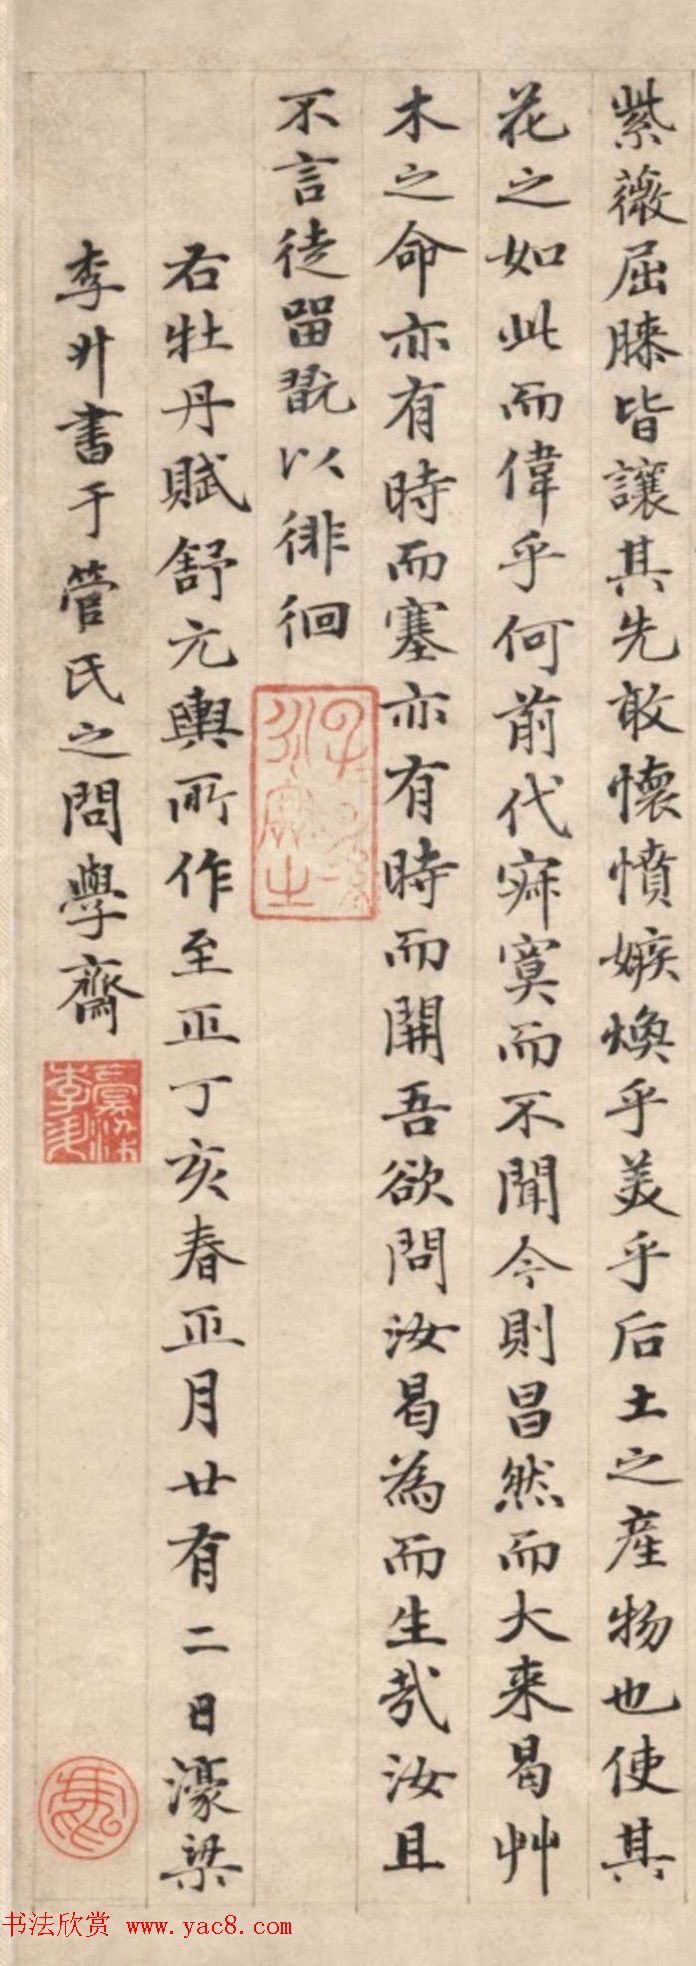 紫薇屈膝皆讓其先敢懷憤嫉煥乎美乎后土之產物也使其
花之如此而偉乎何前代寂寞而不聞今則昌然而大來曷艸
木之命亦有時而塞亦有時而開吾欲問汝曷為而生哉汝且
不言徒留翫以徘徊
右牡丹賦舒元輿所作至正丁亥春正月廿有二日濠梁
李升書于管氏之問學齋
书法欣赏 www.yac8.com